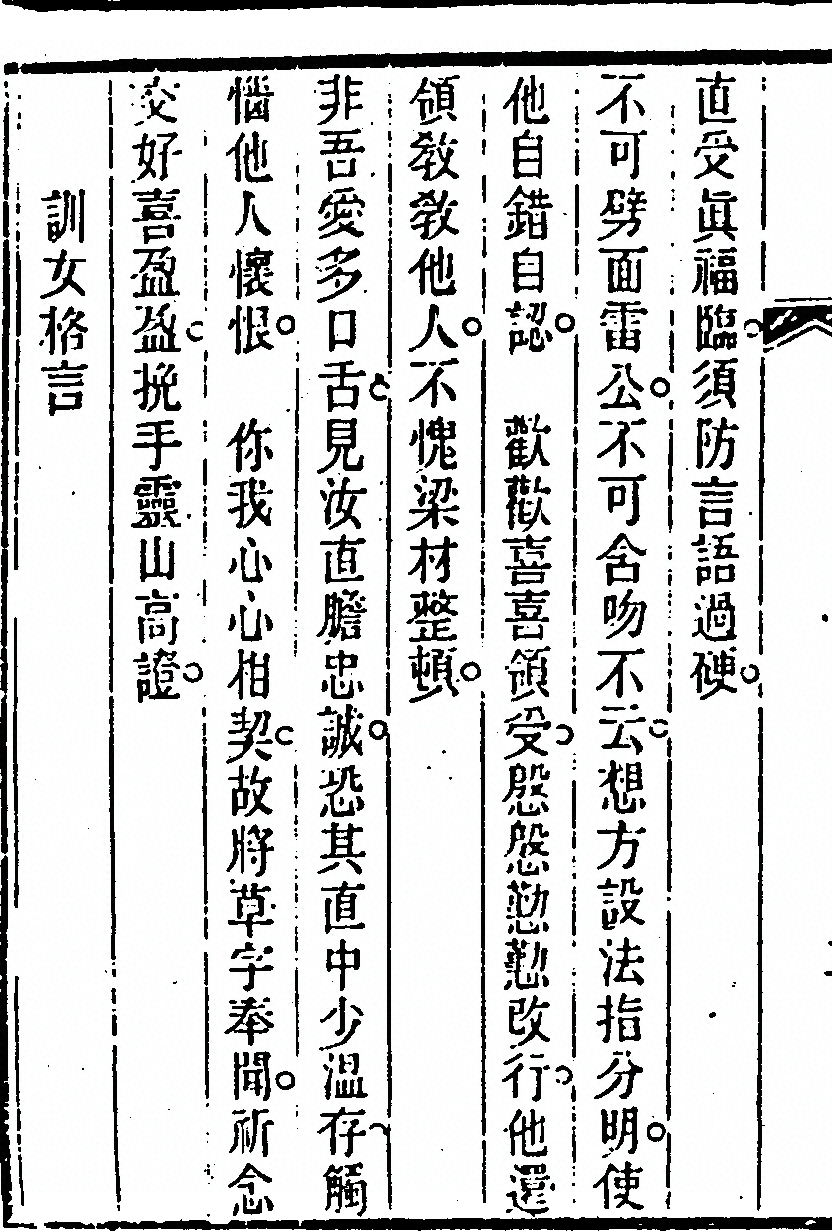 直受眞福臨。須防言語過硬。
不可劈面雷公。不可含吻不云。想方設法指分明。使
他自錯自認。　歡歡喜喜領受。慇慇懃懃改行。他還
領敎敎他人。不愧梁材整頓。
非吾愛多口舌。見汝直膽忠誠。恐其直中少溫存。觸
惱他人懷恨。　你我心心相契。故將草字奉聞。祈念
交好喜盈盈。挽手靈山高證。
訓女格言